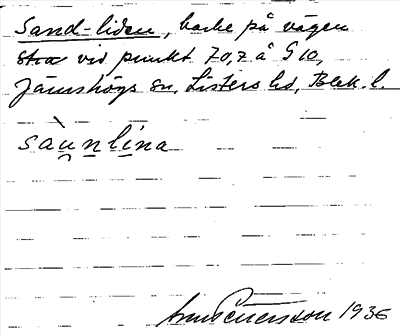 Sand-liden, backe på vägen
Stra vid punkt 70,7 å G 10,
Jämshögs sn, Listers hd, Blek. l.
sàu̯nlina
Pettersson 1936